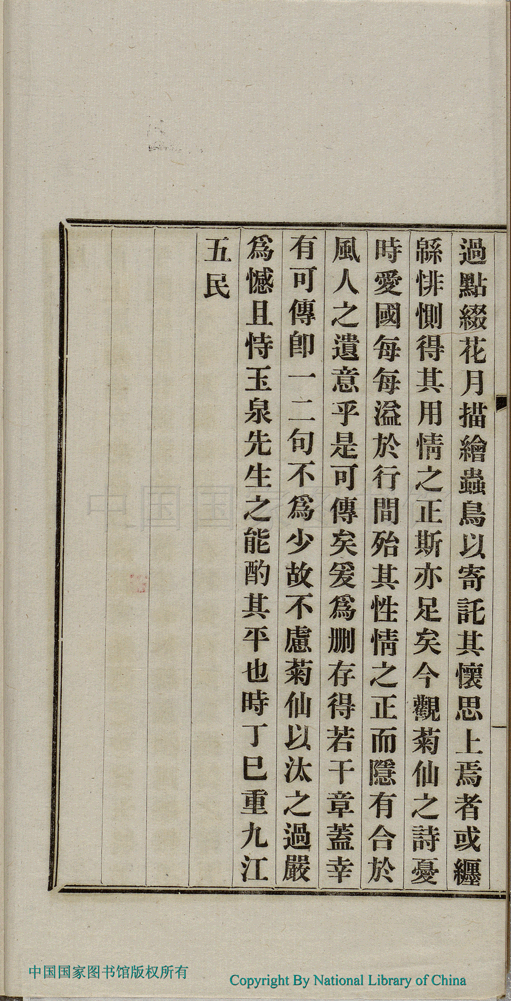 過點綴花月描繪蟲鳥以寄託其懷思上焉者或纏
緜悱惻得其用情之正斯亦足矣今觀菊仙之詩憂
時愛國每每溢於行間殆其性情之正而隱有合於
風人之遺意乎是可傳矣爰爲删存得若干章蓋幸
有可傳卽一二句不爲少故不慮菊仙以汰之過嚴
爲憾且恃玉泉先生之能酌其平也時丁巳重九江
五民
中国国家图书馆版权所有
Copyright By National Library of China